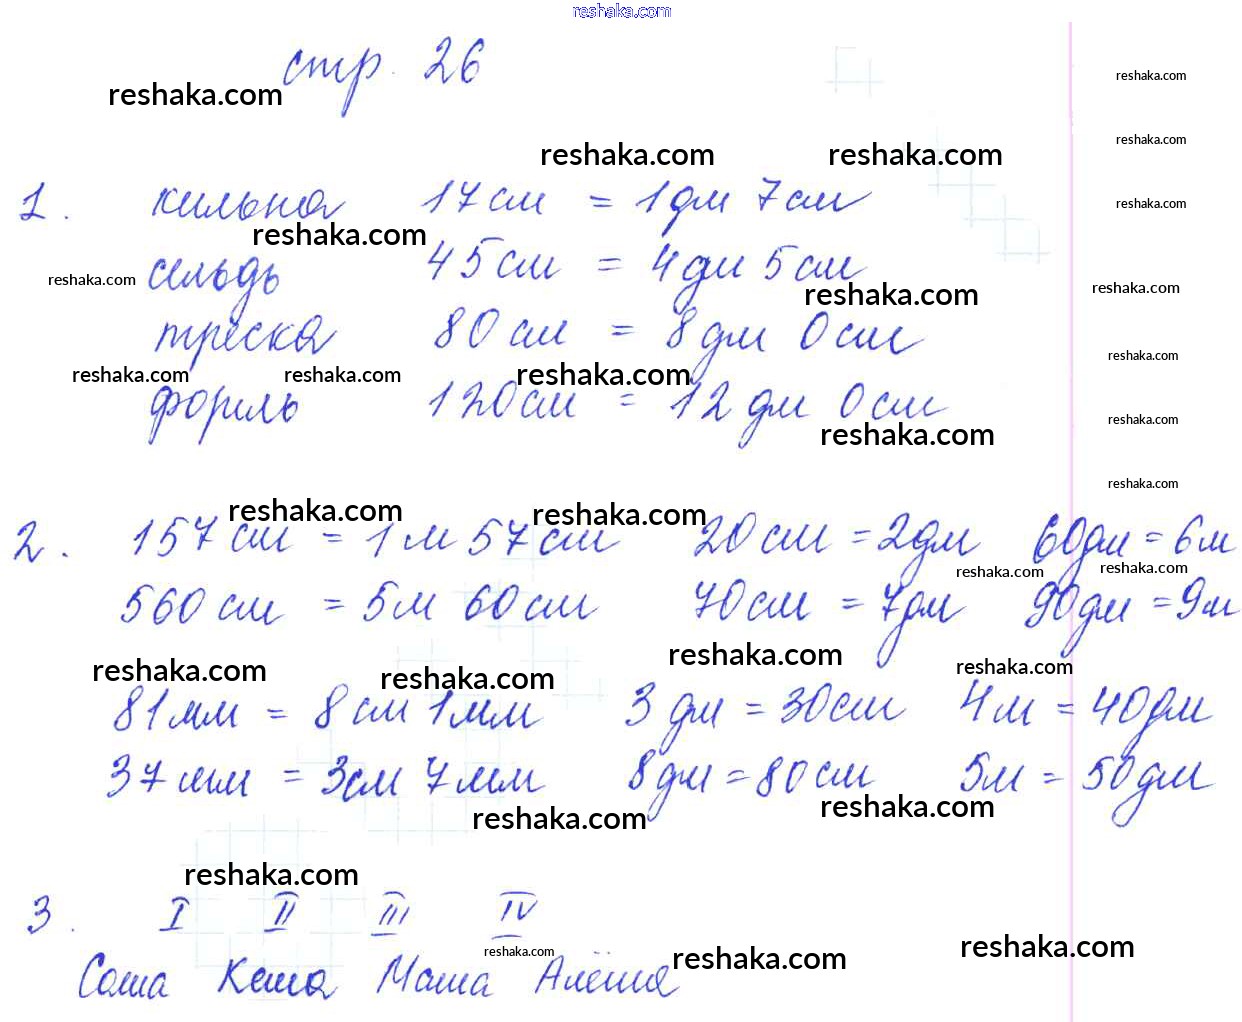 reshaka.com
стр. 26
reshaka.com
reshaka.com
reshaka.com reshaka.com
reshaka.com
1. килька 17 см = 1 дм 7 см
reshaka.com
reshaka.com
сельдь 45 см = 4 дм 5 см
reshaka.com reshaka.com reshaka.com
треска 80 см = 8 дм 0 см
reshaka.com
reshaka.com reshaka.com reshaka.com
форель 120 см = 12 дм 0 см
reshaka.com
reshaka.com
reshaka.com
reshaka.com reshaka.com
2. 157 см = 1 м 57 см 20 см = 2 дм 60 дм = 6 м
reshaka.com reshaka.com
560 см = 5 м 60 см 70 см = 7 дм 90 дм = 9 м
reshaka.com reshaka.com reshaka.com reshaka.com
81 мм = 8 см 1 мм 3 дм = 30 см 4 м = 40 дм
37 мм = 3 см 7 мм 8 дм = 80 см 5 м = 50 дм
reshaka.com reshaka.com
reshaka.com
3. I II III IV
reshaka.com reshaka.com reshaka.com
Саша Кеша Маша Алёша